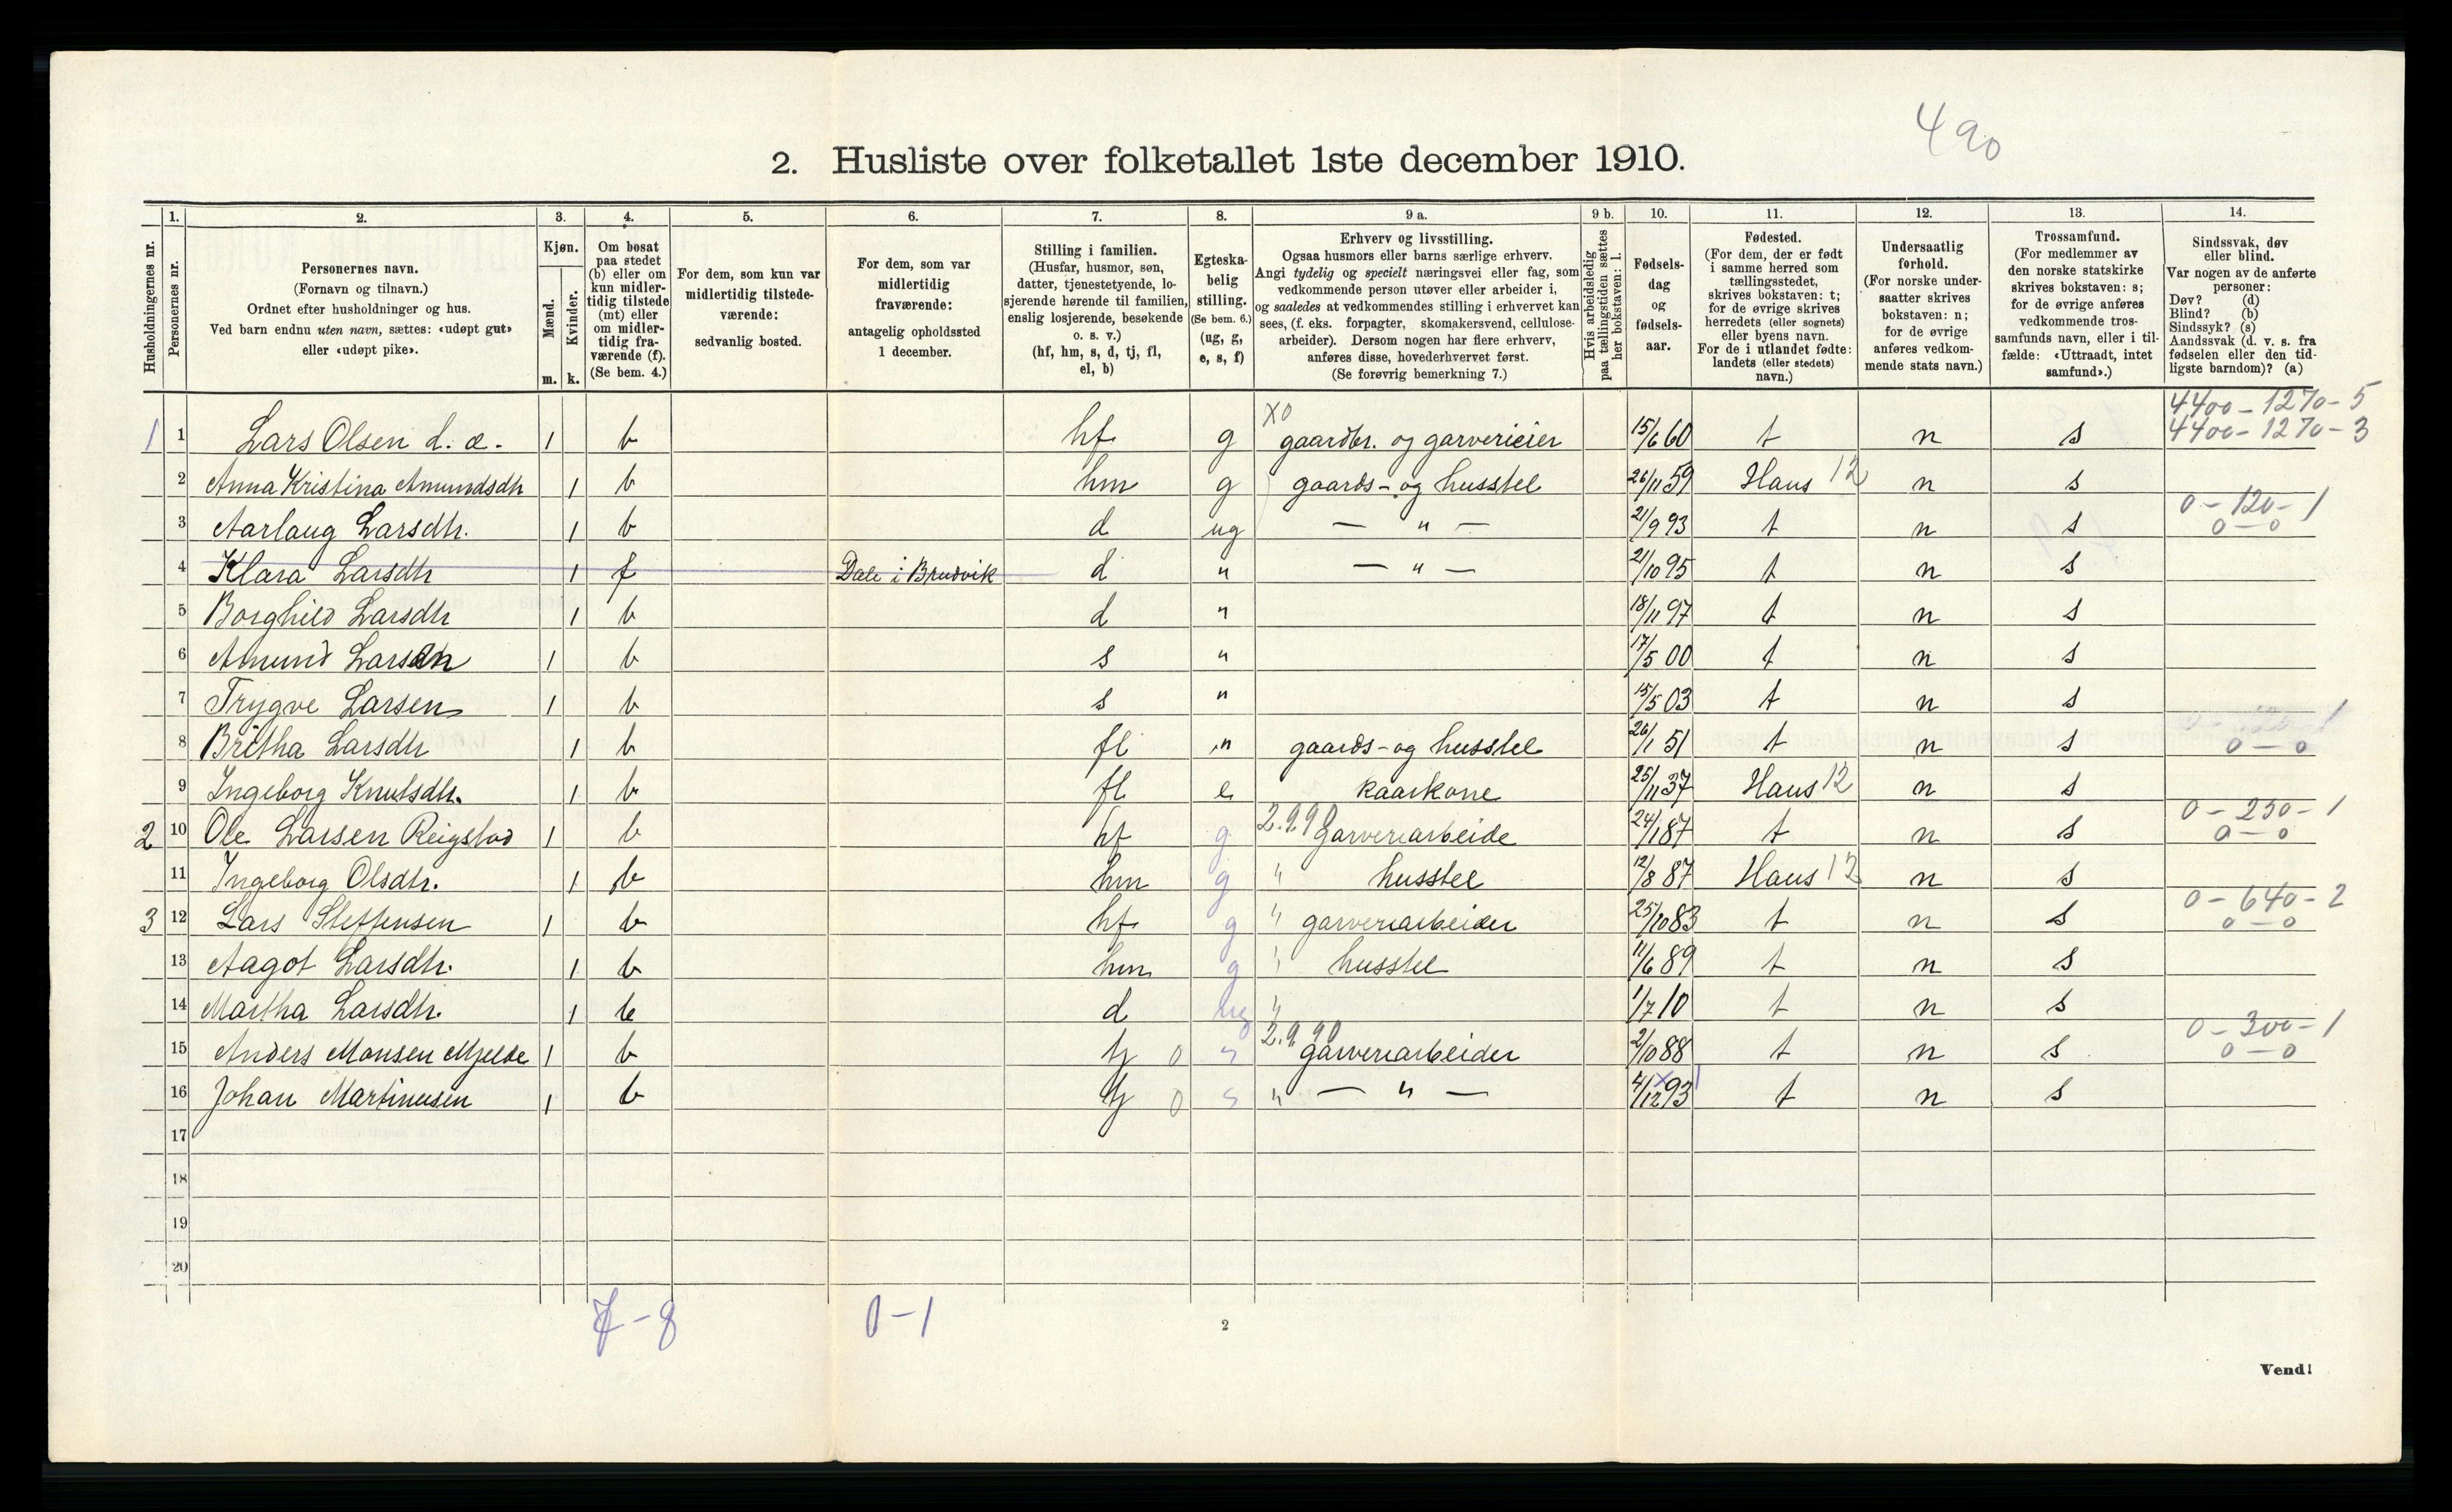 490
2. Husliste over folketallet 1ste december 1910.
Husholdningernes nr.
1. Personernes nr.
2. Personernes navn. (Fornavn og tilnavn.) Ordnet efter husholdninger og hus. Ved barn endnu uten navn, sættes: «udøpt gut» eller «udøpt pike».
3. Kjøn. Mænd. m. Kvinder. k.
4. Om bosat paa stedet (b) eller om kun midlertidig tilstede (mt) eller om midlertidig fraværende (f). (Se bem. 4.)
5. For dem, som kun var midlertidig tilstedeværende: sedvanlig bosted.
6. For dem, som var midlertidig fraværende: antagelig opholdssted 1 december.
7. Stilling i familien. (Husfar, husmor, søn, datter, tjenestetyende, losjerende hørende til familien, enslig losjerende, besøkende o. s. v.) (hf, hm, s, d, tj, fl, el, b)
8. Egteskabelig stilling. (Se bem. 6.) (ug, g, e, s, f)
9 a. Erhverv og livsstilling. Ogsaa husmors eller barns særlige erhverv. Angi tydelig og specielt næringsvei eller fag, som vedkommende person utøver eller arbeider i, og saaledes at vedkommendes stilling i erhvervet kan sees, (f. eks. forpagter, skomakersvend, cellulosearbeider). Dersom nogen har flere erhverv, anføres disse, hovederhvervet først. (Se forøvrig bemerkning 7.)
9 b. Hvis arbeidsledig paa tællingstiden sættes her bokstaven: l.
10. Fødselsdag og fødselsaar.
11. Fødested. (For dem, der er født i samme herred som tællingsstedet, skrives bokstaven: t; for de øvrige skrives herredets (eller sognets) eller byens navn. For de i utlandet fødte: landets (eller stedets) navn.)
12. Undersaatlig forhold. (For norske undersaatter skrives bokstaven: n; for de øvrige anføres vedkommende stats navn.)
13. Trossamfund. (For medlemmer av den norske statskirke skrives bokstaven: s; for de øvrige anføres vedkommende trossamfunds navn, eller i tilfælde: «Uttraadt, intet samfund».)
14. Sindssvak, døv eller blind. Var nogen av de anførte personer: Døv? (d) Blind? (b) Sindssyk? (s) Aandssvak (d. v. s. fra fødselen eller den tidligste barndom)? (a)
1 1 Lars Olsen d. æ. 1 b hf g X0 gaardbr. og garverieier 15/6 60 t n s 4400-1270-5 4400-1270-3
2 Anna Kristina Amundsdtr 1 b hm g gaards- og husstel 26/11 59 Haus 12 n s
3 Aarlaug Larsdtr. 1 b d ug — " — 21/9 93 t n s 0-120-1 0-0
4 Klara Larsdtr 1 f Dale i Brudvik d " — " — 21/10 95 t n s
5 Borghild Larsdtr 1 b d " 18/11 97 t n s
6 Amund Larsen 1 b s " 17/5 00 t n s
7 Trygve Larsen 1 b s " 15/5 03 t n s
8 Britha Larsdtr 1 b fl " gaards- og husstel 26/1 51 t n s 0-0
9 Ingeborg Knutsdtr. 1 b fl e kaarkone 25/11 37 Haus 12 n s
2 10 Ole Larsen Reigstad 1 b hf g 2.9.90 Garveriarbeide 24/1 87 t n s 0-250-1 0-0
11 Ingeborg Olsdtr. 1 b hm g " husstel 12/8 87 Haus 12 n s
3 12 Lars Steffensen 1 b hf g " garveriarbeider 25/10 83 t n s 0-640-2 0-0
13 Aagot Larsdtr. 1 b hm g " husstel 11/6 89 t n s
14 Martha Larsdtr. 1 b d ug " 1/7 10 t n s
15 Anders Monsen Mjelde 1 b tj 0 s 2.9.90 garveriarbeider 2/10 88 t n s 0-300-1 0-0
16 Johan Martinusen 1 b tj 0 s " — " — 4/12 93 t n s
17
18
19
20
7-8 0-1
2
Vend!